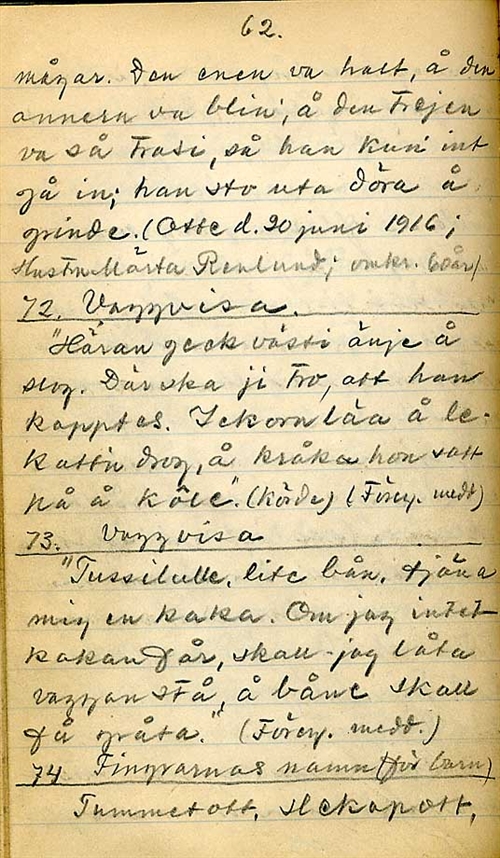 62.
mågar. Den enen va halt, å den
annern va blin', å den trejen
va så trasi, så han kun' int
gå in; han sto uta döra å
grinde. (Otte d. 20 juni 1916;
Hustru Märta Renlund; omkr. 60 år)
72. Vaggvisa.
"Häran geck västi änje å
slog. Där ska ji tro, att han
kapptes. Ickorn låa å le-
kattn drog, å kråka hon satt
på å köle". (körde) (Föreg. medd)
73. Vaggvisa
"Tussilulle, lite bån, tjäna
mig en kaka. Om jag intet
kakan får, skall jag låta
vaggan stå, å båne skall
få gråta." (Föreg. medd.)
74 Fingrarnas namn (för barn)
Tummetott, slekopott,